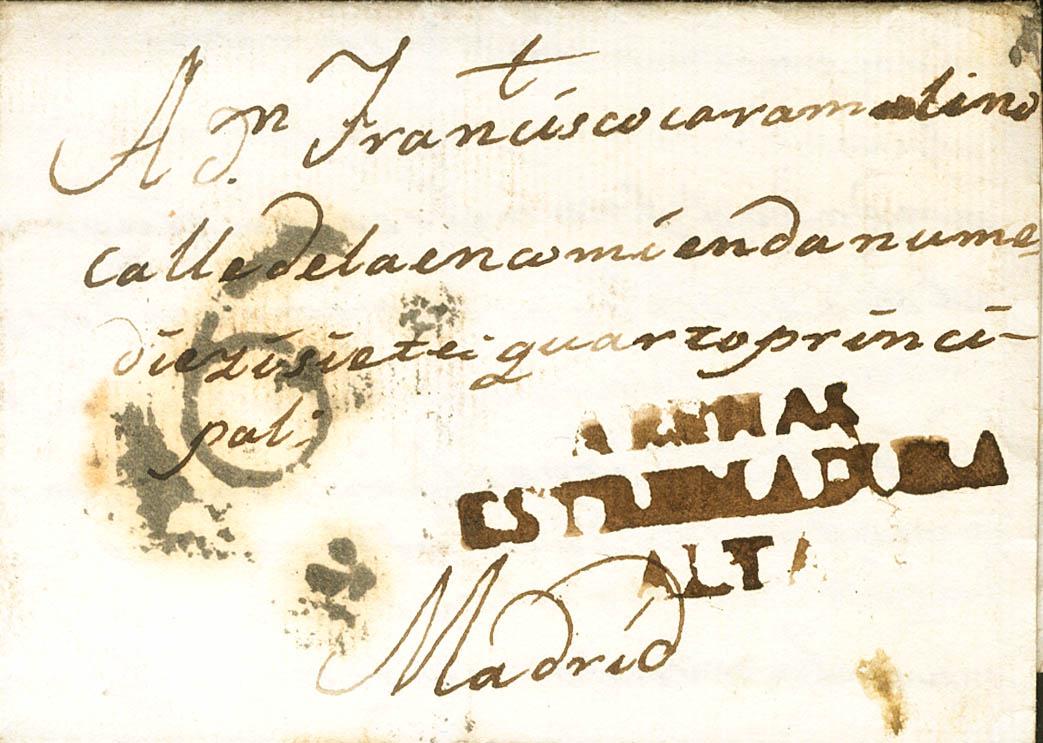 A dn Francisco caramolino
calle de la encomienda nume
diezisiete quarto princi-
pal
ARENAS
ESTREMADURA
ALTA
Madrid